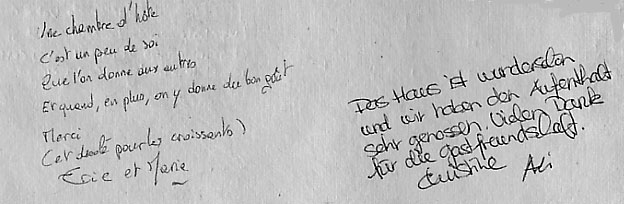 Une chambre d'hôte
C'est un peu de soi
Que l'on donne aux autres
Et quand, en plus, on y donne du bon goût
Merci
(et désolé pour les croissants)
et Marie
Das Haus ist wunderschön
und wir haben den Aufenthalt
sehr genossen. Vielen Dank
für die Gastfreundschaft.
Christine